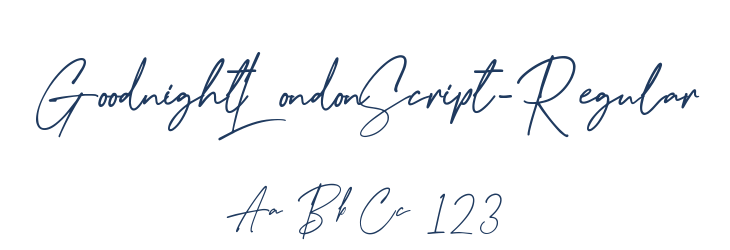 GoodnightLondonScript-Regular
Aa Bb Cc 123